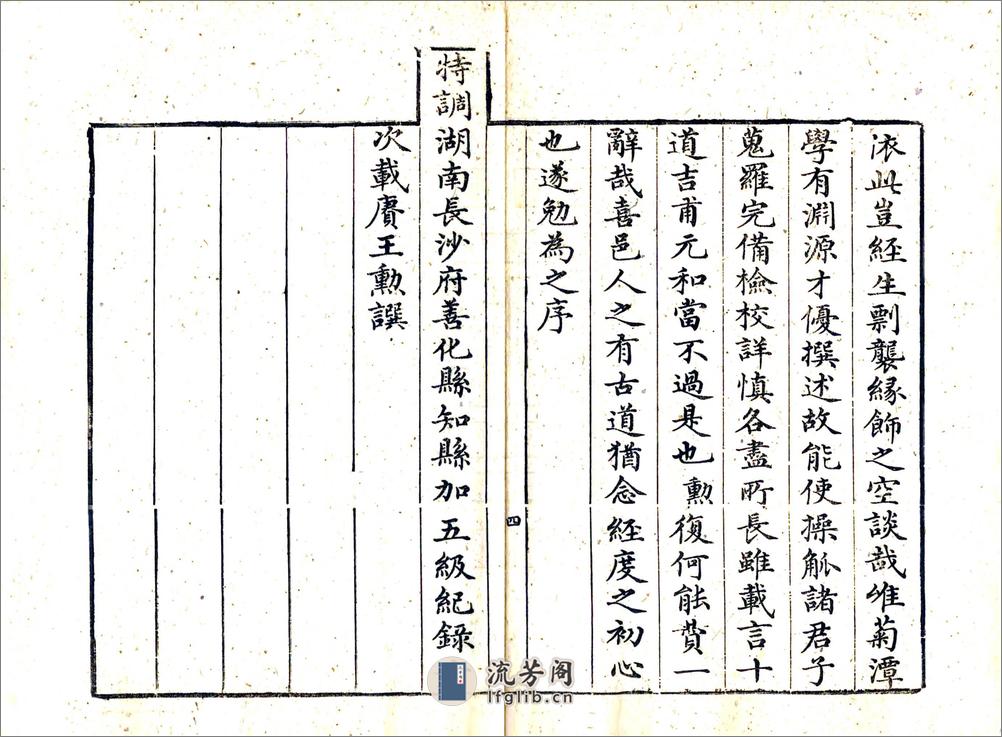 浓此豈經生剽襲緣飾之空談哉惟菊潭
學有淵源才優撰述故能使操觚諸君子
蒐羅完備檢校詳慎各盡所長雖載言十
道吉甫元和當不過是也勳復何能贊一
辭哉喜邑人之有古道猶念經度之初心
也遂勉為之序
特調湖南長沙府善化縣知縣加五級紀錄
次載賡王勳譔
四
流芳阁
lfglib.cn